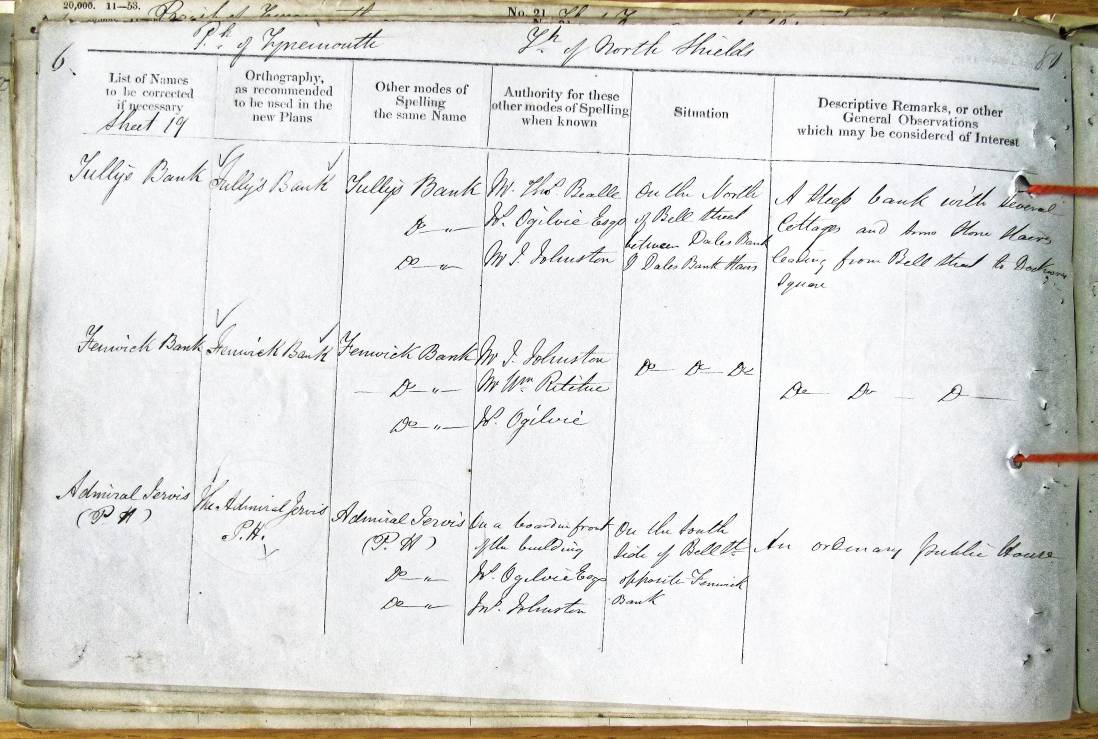 20,000. 11—53.
No. 21
6
Ph. of Tynemouth
Th. of North Shields
List of Names
to be corrected
if necessary
Sheet 19
Orthography,
as recommended
to be used in the
new Plans
Other modes of
Spelling
the same Name
Authority for these
other modes of Spelling
when known
Situation
Descriptive Remarks, or other
General Observations
which may be considered of Interest
Tully's Bank
Tully's Bank
Tully's Bank
Do "
Do "
Mr. Thos. Bealle
Wm. Ogilvie Esqr
Mr J. Johnston
On the North
of Bell Street
between Dales Bank
& Dales Bank Stairs
A Steep bank with several
Cottages and some Stone Stairs
leading from Bell Street to Dockwray
Square
Fenwick Bank
Fenwick Bank
Fenwick Bank
Do "
Do "
Mr J. Johnston
Mr Wm Ritchie
Wm. Ogilvie
Do Do Do
Do Do Do
Admiral Jervis
(P H)
The Admiral Jervis
P.H.
Admiral Jervis
(P. H)
Do "
Do "
On a board in front
of the building
Wm. Ogilvie Esqr
Jno. Johnston
On the South
Side of Bell St
opposite Fenwick
Bank
An ordinary public House